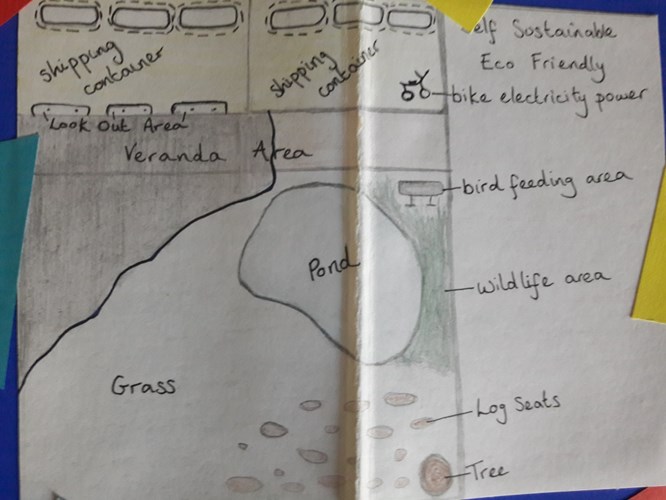 elf Sustainable
Eco Friendly
shipping
container
shipping
container
bike electricity power
Look Out Area
Veranda Area
bird feeding area
Pond
wildlife area
Grass
Log Seats
Tree